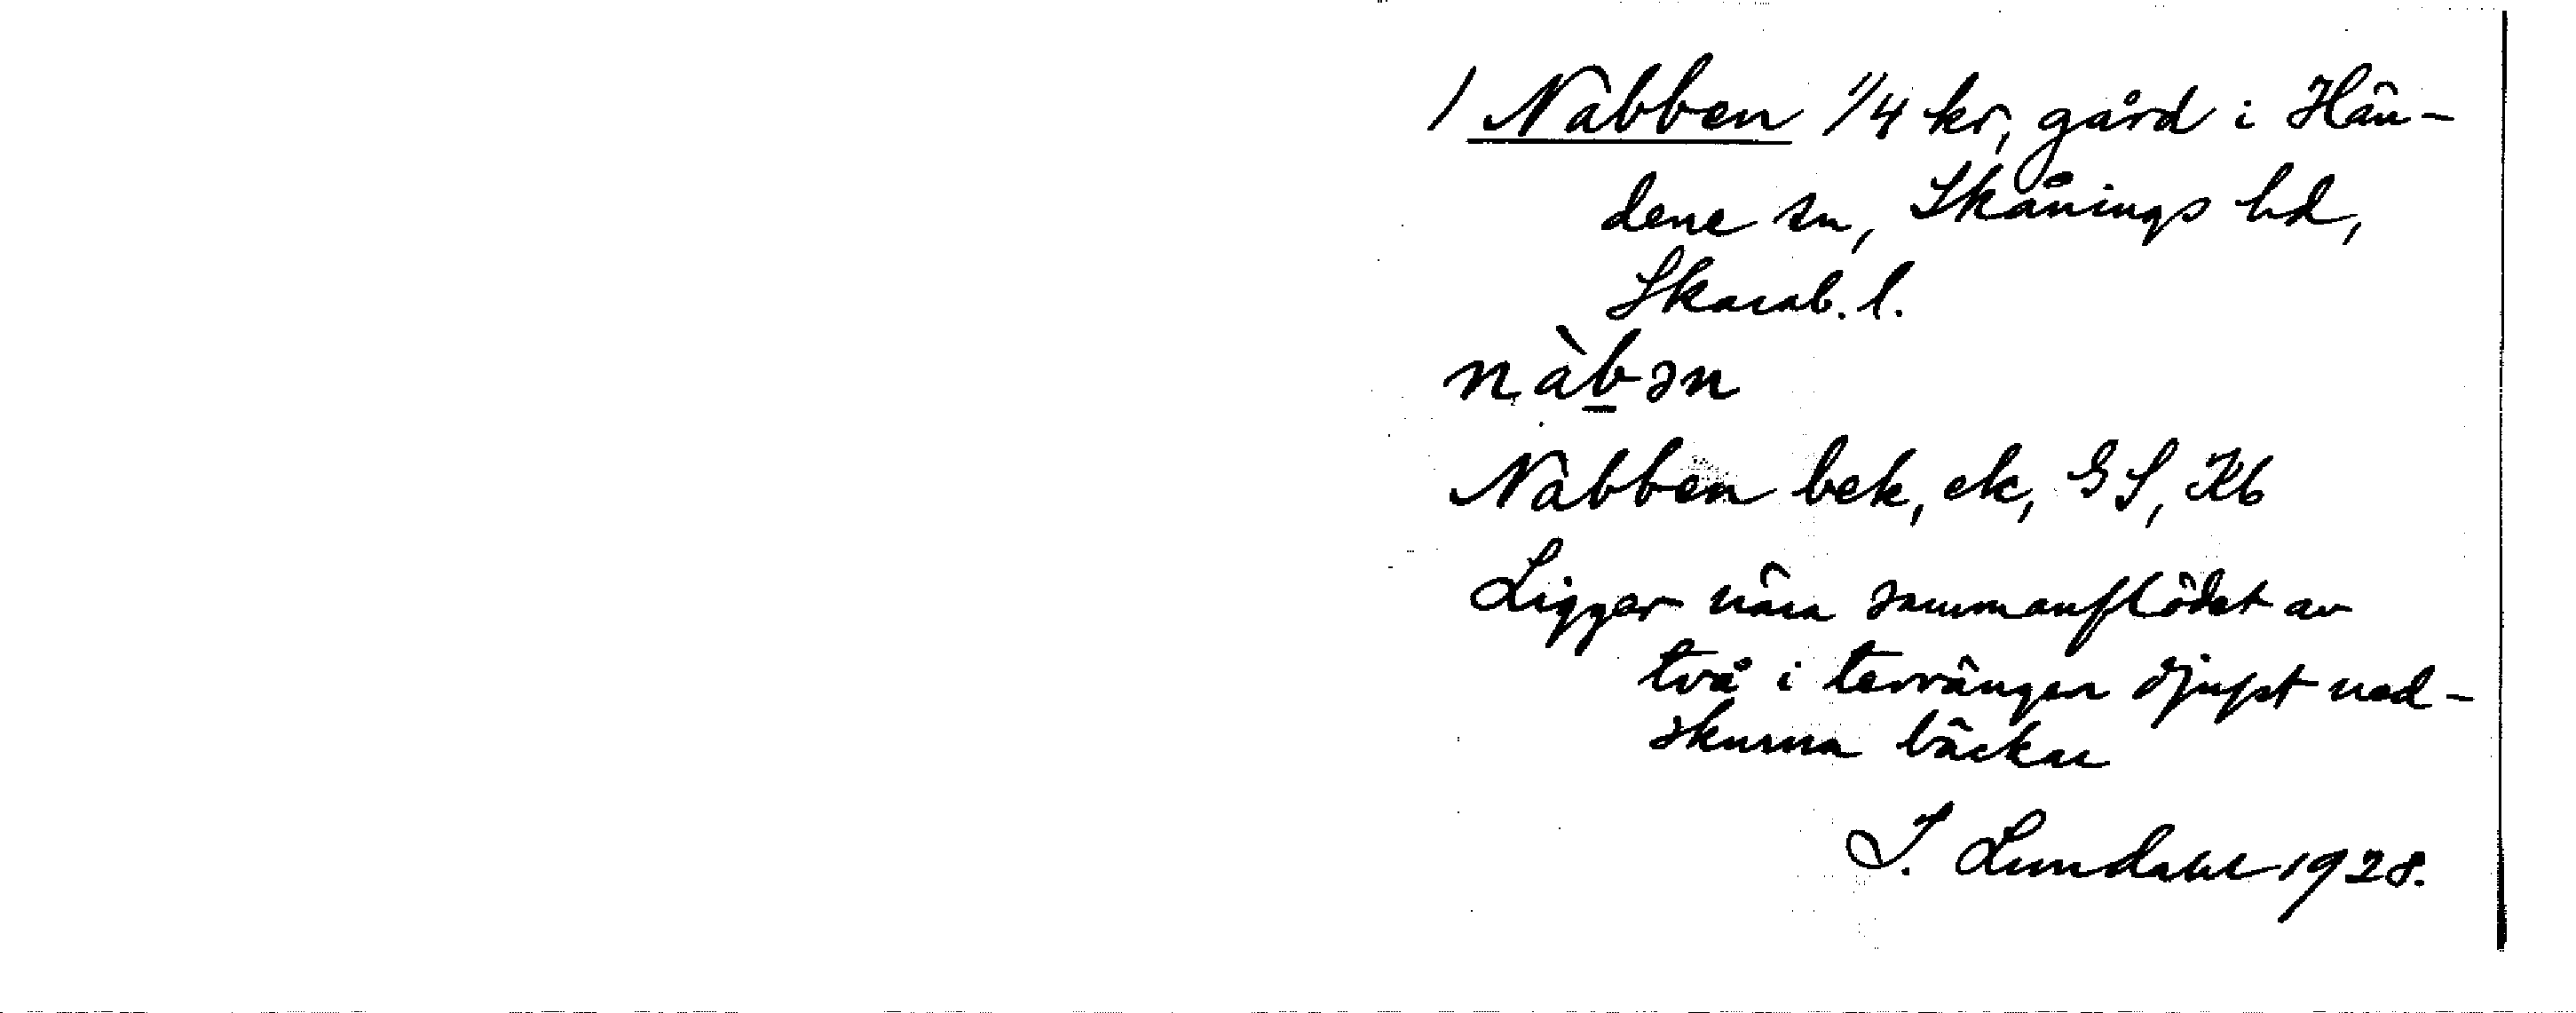 1 Nabben 1/4 kr, gård i Hän-
dene sn, Skånings hd,
Skarab. l.
nàbən
Nabben bek, ek, GS, Kb
Ligger nära sammanflödet av
två i terrängen djupt ned-
skurna bäckar
I. Lundahl 1928.